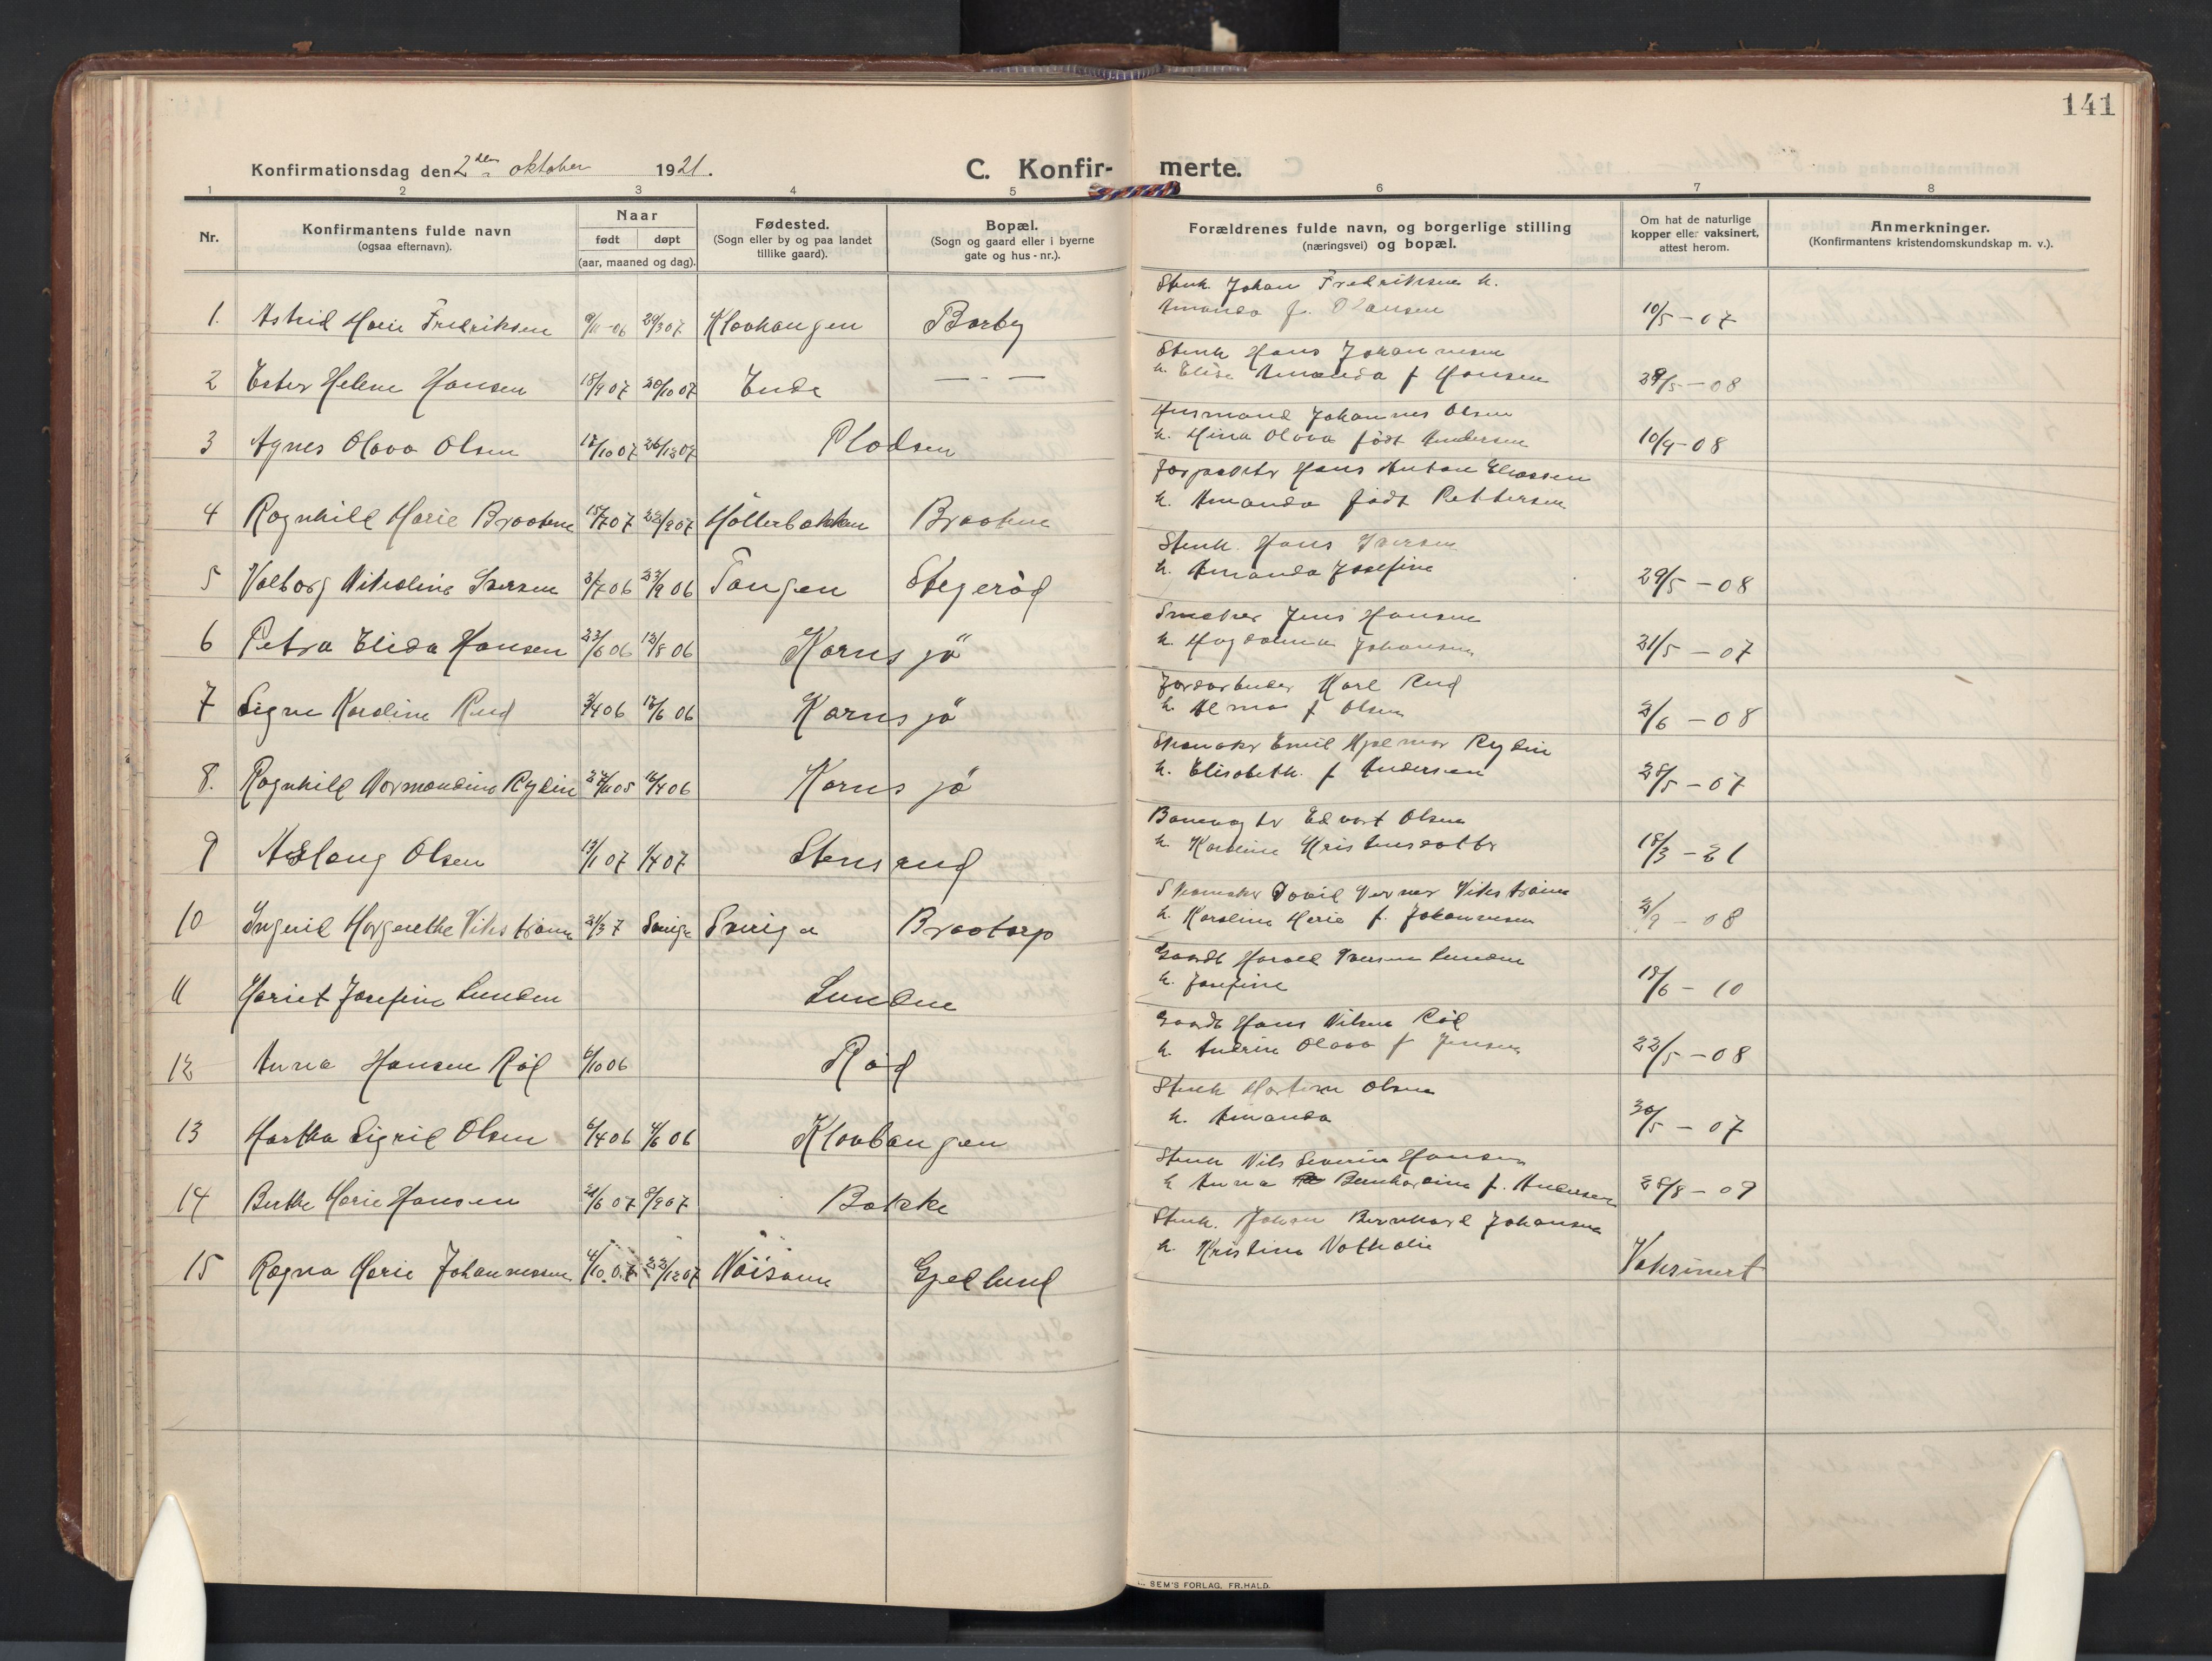 141
Konfirmationsdag den 2den oktober 1921. C. Konfir- merte.
1 2 3 4 5 6 7 8
Nr.
Konfirmantens fulde navn
(ogsaa efternavn).
Naar
født døpt
(aar, maaned og dag).
Fødested.
(Sogn eller by og paa landet
tillike gaard).
Bopæl.
(Sogn og gaard eller i byerne
gate og hus-nr.).
Forældrenes fulde navn, og borgerlige stilling
(næringsvei) og bopæl.
Om hat de naturlige
kopper eller vaksinert,
attest herom.
Anmerkninger.
(Konfirmantens kristendomskundskap m. v.).
Stenh. Johan Fredriksen h.
Amanda f. Hansen
1. Astrid Marie Fredriksen 9/11-06 29/3 07 Klovhaugen Borby 10/5-07
Stenh Hans Johannesen
h. Elise Amanda f Hansen
2 Ester Helene Hansen 15/9 07 20/10 07 Ende — " — 29/5-08
Husmand Johannes Olsen
h. Mina Olava født Andersen
3 Agnes Olava Olsen 17/10 07 26/12 07 Plodsen 10/9-08
Forpakter Hans Anton Eliassen
h. Amanda født Pettersen
4 Ragnhild Marie Braatene 15/7 07 22/9 07 Møllerbakken Braatene
Stenh. Hans Iversen
h. Amanda Josefine
5 Valborg Nikoline Iversen 3/7 06 23/9 06 Tangen Stegerød 29/5-08
Smeker Jens Hansen
h. Magdalena Johansen
6 Petra Elida Hansen 23/6 06 12/8 06 Kornsjø 31/5-07
Jordarbeider Karl Rud
h. Alma f Olsen
7 Signe Karoline Rud 3/4 06 17/6 06 Kornsjø 3/6-08
Skomaker Emil Hjalmar Rydin
h. Elisabeth. f Andersen
8. Ragnhild Normandine Rydin 27/11 05 16/4 06 Kornsjø 28/5-07
Banevogter Edvart Olsen
h. Karoline Kristensdatter
9 Aslaug Olsen 13/1 07 1/4 07 Stensrud 18/3-21
Skomaker David Verner Vikstrøm
h. Karoline Marie f. Johannesen
10 Ingerid Margrethe Vikstrøm 31/3 7 Sverige Sverige Braatorp 3/9-08
Gaardb Harald Iversen Lunden
h. Josefine
11 Hariet Josefine Lunden Lunden 18/6-10
Gaardb Hans Nilsen Rød
h. Andrine Olava f Jensen
12 Anna Hansen Rød 6/10 06 Rød 22/5-08
Stenh Martin Olsen
h. Amanda
13 Martha Sigrid Olsen 6/4 06 4/6 06 Klovhaugen 30/5-07
Stenh Nils Severin Hansen
h Anna Bernhardine f. Andersen
14 Berthe Marie Hansen 21/6 07 8/9 07 Bakke 28/8-09
Stenh. Johan Bernhard Johansen
h. Kristine Nathalie
15 Ragna Marie Johannessen 4/10 07 22/12 07 Nøisom Gjedlund Vaksinert
SEM'S FORLAG, FR.HALD.